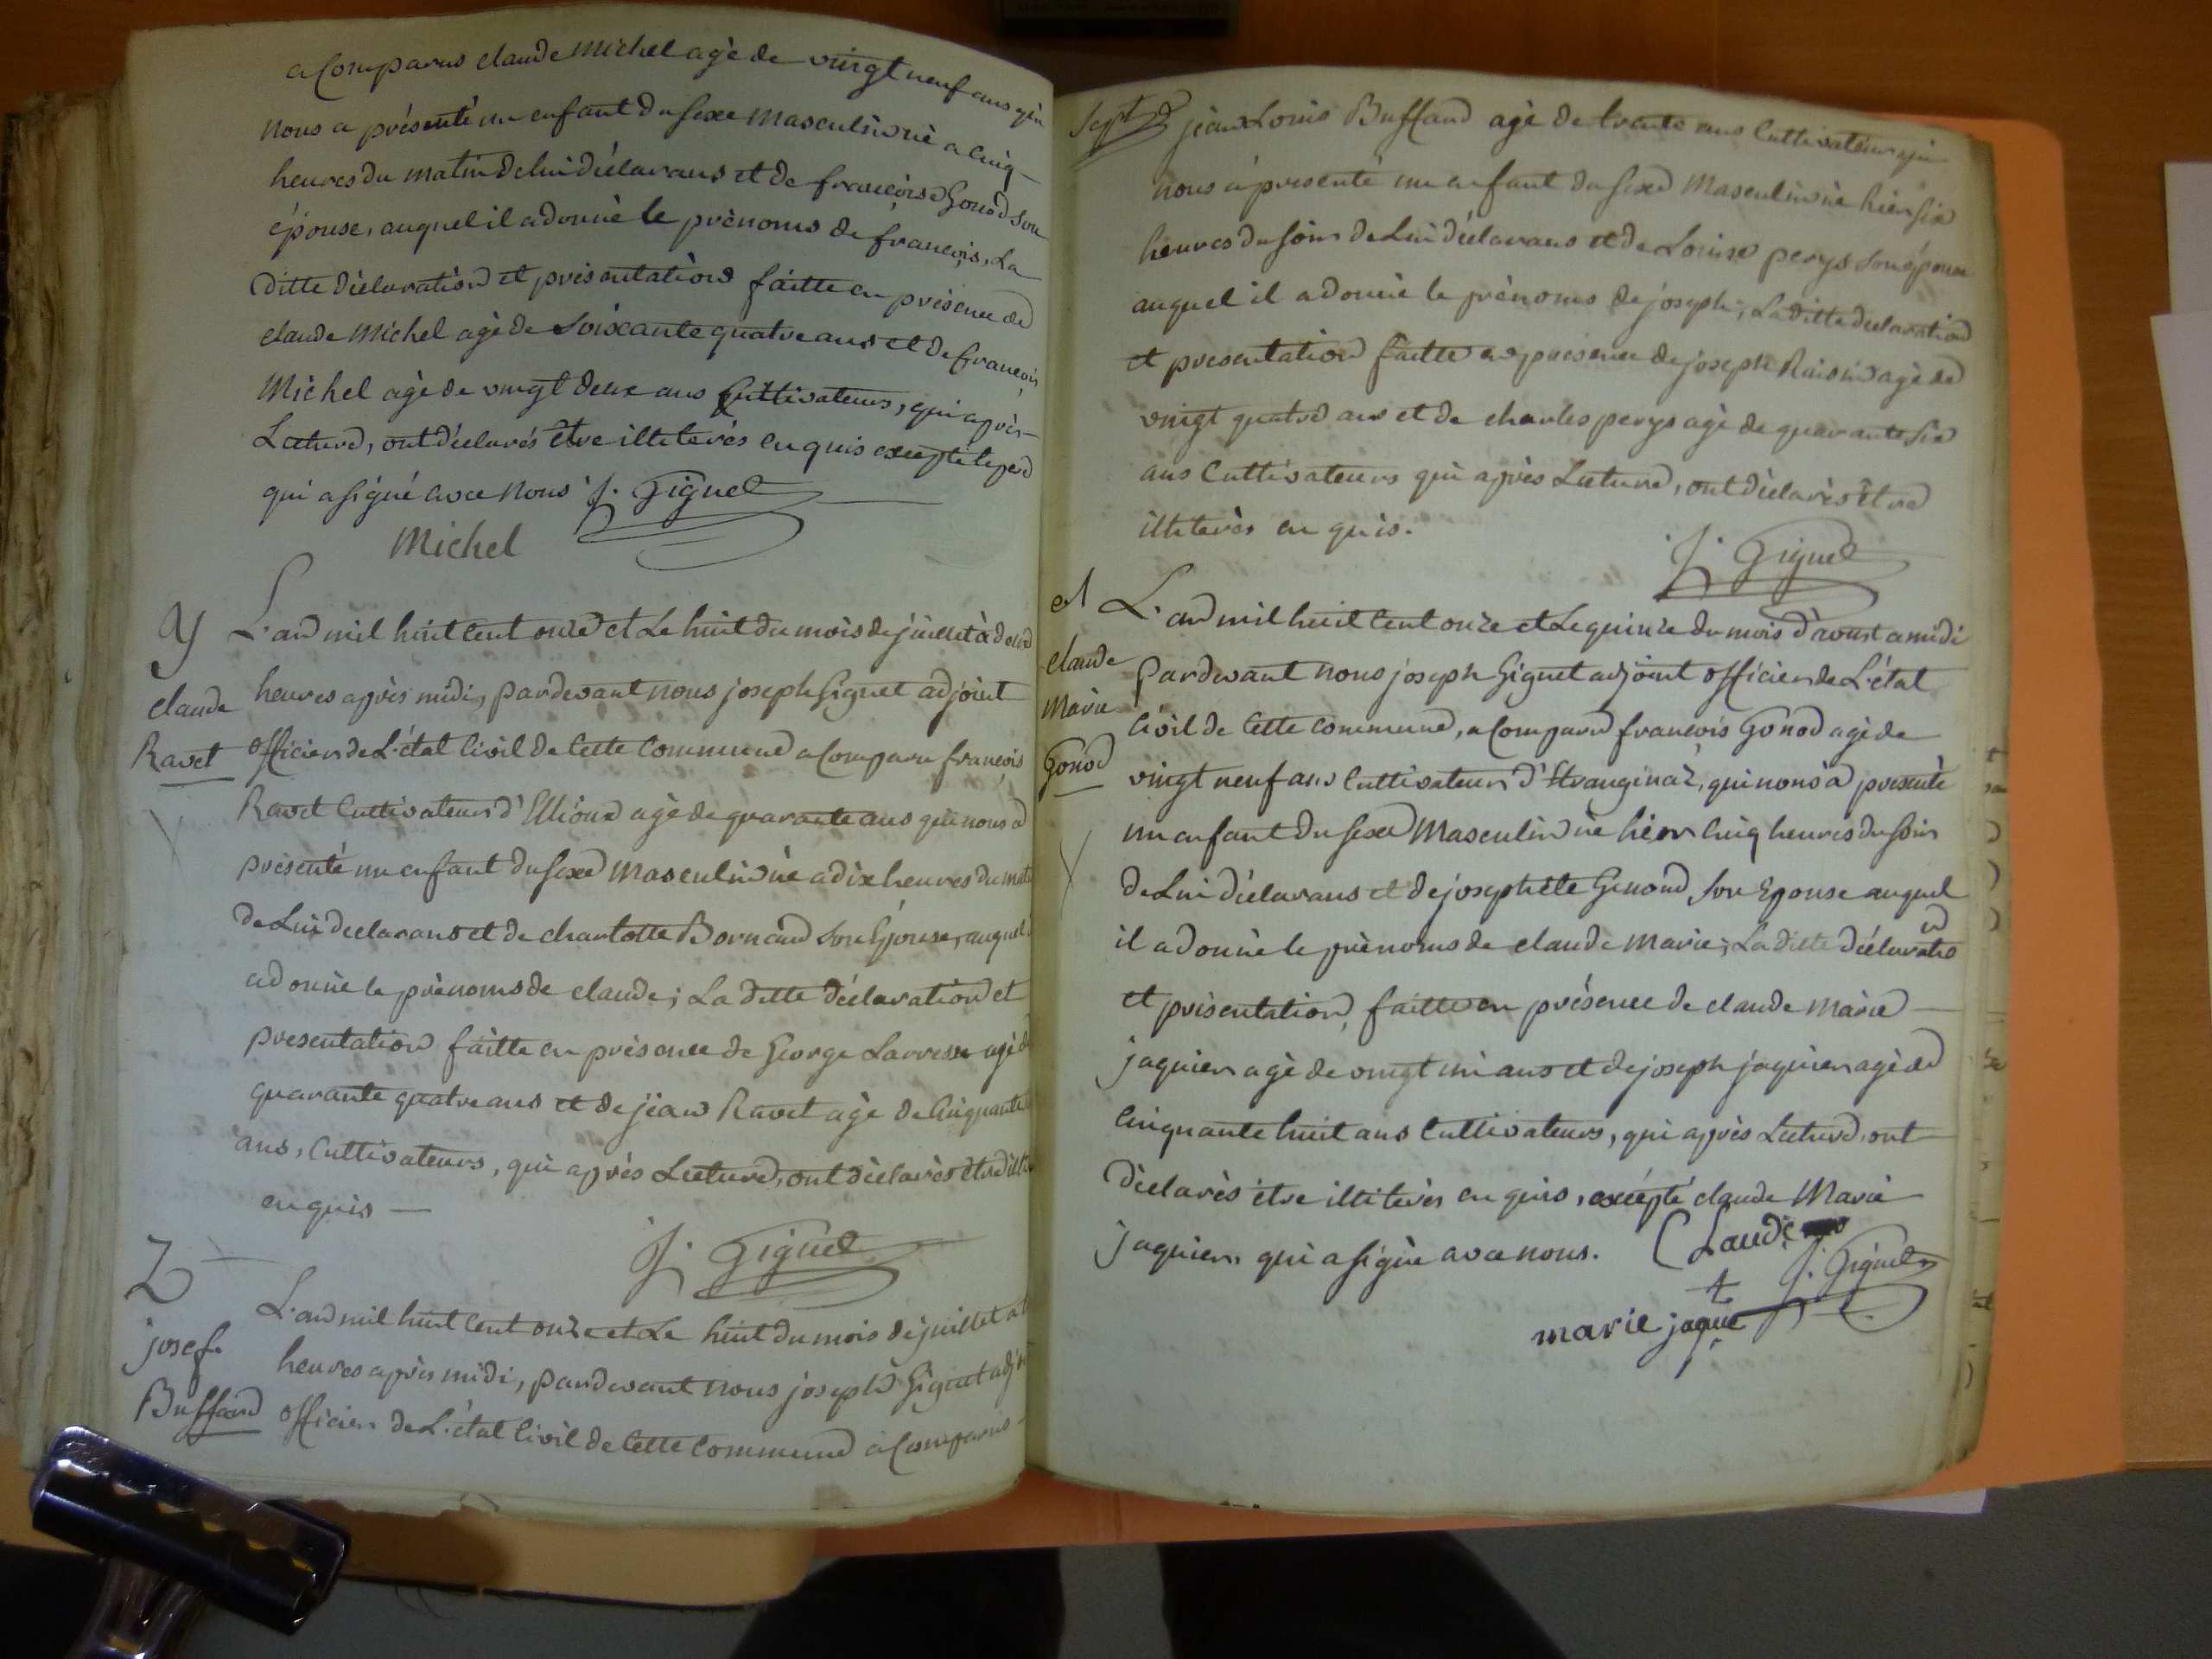 a Comparus claude Michel agè de vingt neuf ans qui
nous a présenté un enfant du sexe masculin nè a cinq
heures du matin de lui déclarans et de francoise Gonod son
épouse, auquel il a donnè le prènoms de francois, La
ditte dèclaration et prèsentation faitte en prèsence de
claude Michel agè de soixante quatre ans et de francois
Michel agè de vingt deux ans Cultivateurs, qui après
Lecture, ont déclarés être illiterés enquis excepté le perd
qui a signé avec nous J. Giguet
Michel
y
L'an mil huit cent onze et Le huit du mois de juillet à deux
claude
heures après midi, pardevant nous joseph Giguet adjoint
Ravet
officier de L'état Civil de Cette Commune a Comparu francois
Ravet Cultivateur d'Ellioux agè de quarante ans qui nous a
présenté un enfant du sexe masculin nè a dix heures du mat
de Lui declarans et de charlotte Bornand son Epouse, auquel
a donnè le prènoms de claude; La ditte déclaration et
presentation faitte en prèsence de George agè de
quarante quatre ans et de jean Ravet agè de Cinquante
ans, Cultivateurs, qui après Lecture, ont dèclarès être
enquis —
J. Giguet
Z
L'an mil huit cent onze et Le huit du mois de juillet a
josef.
heures après midi, pardevant nous joseph Giguet
Buffard
officier de L'état Civil de Cette Commune à Comparus
Sept
jean Louis Buffard agè de trente ans Cultivateur qui
nous à présenté un enfant du sexe Masculin nè hier six
heures du soir de Lui dèclarans et de Louise perys son épouse
auquel il a donnè le prènoms de joseph; La ditte declaration
et presentation faitte en presence de joseph Raisin agè de
vingt quatre ans et de charles perys agè de quarante six
ans Cultivateurs qui après Lecture, ont dèclarès être
illiterès enquis.
J. Giguet
A
L'an mil huit Cent onze et Le quinze du mois d'aoust a midi
claude
Pardevant nous joseph Giguet adjoint officier de L'état
Marie
Civil de Cette Commune, a Comparu francois Gonod agè de
Gonod
vingt neuf ans Cultivateur d'Etranginaz, qui nous a presentè
un enfant du sexe Masculin nè hier cinq heures du soir
de Lui dèclarans et de josephete Genoud son Epouse auquel
il a donnè le prènoms de claude marie; La ditte déclaration
et prèsentation, faitte en présence de claude marie
jaquier agè de vingt un ans et de joseph jaquier agè de
Cinquante huit ans Cultivateurs, qui après Lecture, ont
dèclarès être illiterès enquis, excépté claude Marie
jaquier, qui a signè avec nous. Claude
J. Giguet
marie jaquie